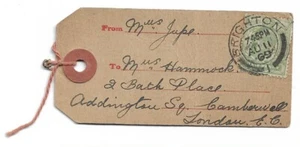 From Mrs Jupe.
To Mrs Hammock
2 Bath Place
Addington Sq. Camberwell
London. E.C.
BRIGHTON
AU 11